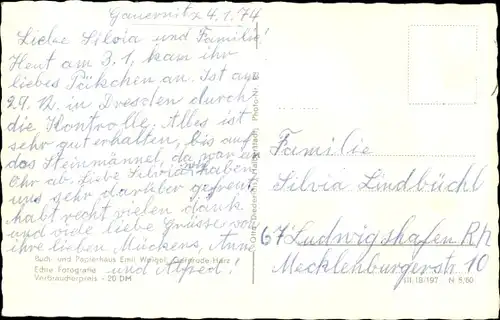 Gauernitz 4.1.74
Liebe Silvia und Familie!
Heut am 3.1. kam ihr
liebes Päkchen an. Ist am
29.12. in Dresden durch
die Kontrolle. Alles ist
sehr gut erhalten, bis auf
das Steinmännel, da war ein
Ohr ab. Liebe Silvia wir haben
uns sehr darüber gefreut
habt recht vielen dank
und viele liebe Grüsse von
ihre lieben Anne
und Alfred!
Buch- und Papierhaus Emil Weigel, Gernrode/Harz
Echte Fotografie
Verbraucherpreis -,20 DM
Familie
Silvia Lindbüchl
67 Ludwigshafen Rh
Mecklenburgerstr 10
III/18/197 N 5/60